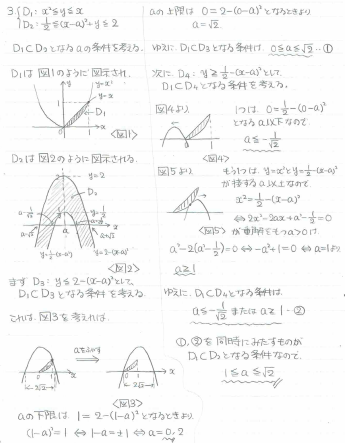 3. D₁: x²≦y≦x
D₂: 1/2≦(x-a)²+y≦2
D₁⊂D₂となるaの条件を考える。
D₁は図1のように図示され、
y=x²
y=x
D₁
<図1>
D₂は図2のように図示される。
y=2
D₂
y=1/2
a-1/√2
a+1/√2
a-√2
a+√2
y=1/2-(x-a)²
y=2-(x-a)²
<図2>
まず D₃: y≦2-(x-a)²として、
D₁⊂D₃となる条件を考える。
これは、図3を考えれば、
aをふやす
2√2
2√2
<図3>
aの下限は 1=2-(1-a)²となるときより
(1-a)²=1 ⇔ 1-a=±1 ⇔ a=0,2
aの上限は 0=2-(0-a)²となるときより
a=√2
ゆえに、D₁⊂D₃となる条件は、0≦a≦√2 …①
次に D₄: y≧1/2-(x-a)²として、
D₁⊂D₄となる条件を考える。
図4より
1つは、0=1/2-(0-a)²
となるa以下なので、
a≦-1/√2
<図4>
図5より
もう1つは、y=x²とy=1/2-(x-a)²
が接するa以上なので
x²=1/2-(x-a)²
⇔2x²-2ax+a²-1/2=0
<図5>
が重解をもつa>0は、
a²-2(a²-1/2)=0⇔-a²+1=0⇔a=1より
a≧1
ゆえに、D₁⊂D₄となる条件は、
a≦-1/√2 または a≧1 …②
①,②を同時にみたすものが
D₁⊂D₂となる条件なので、
1≦a≦√2